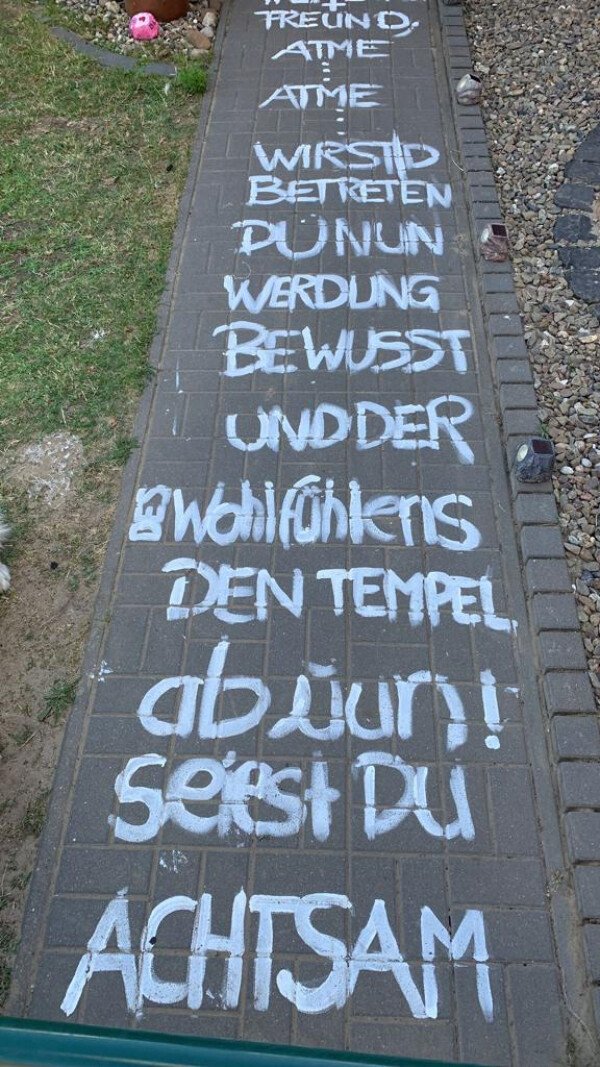 FREUND,
ATME
...
ATME
...
WIRST D
BETRETEN
DU NUN
WERDUNG
BEWUSST
UND DER
DES Wohlfühlens
DEN TEMPEL
ab nun!
seiest DU
ACHTSAM